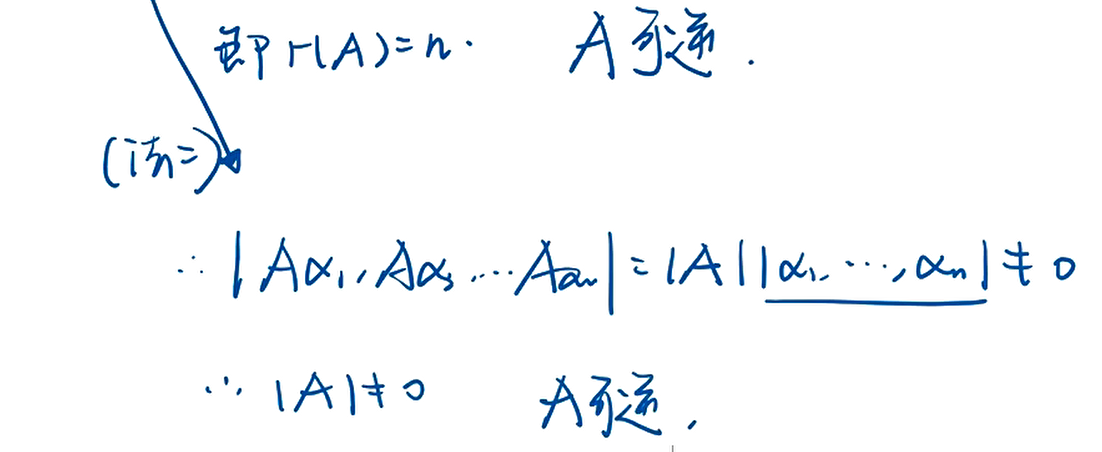 即r(A)=n. A可逆.
(法二)
∴ |Aα₁,Aα₂…Aαₙ|=|A||α₁,…,αₙ|≠0
∴ |A|≠0 A可逆.